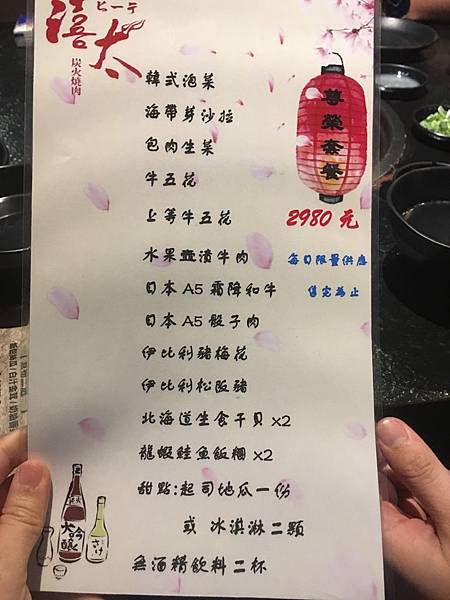 禧太
ヒーテ
炭火燒肉
尊榮套餐
2980 元
每日限量供應
售完為止
韓式泡菜
海帶芽沙拉
包肉生菜
牛五花
上等牛五花
水果壺漬牛肉
日本 A5 霜降和牛
日本 A5 骰子肉
伊比利豬梅花
伊比利松阪豬
北海道生食干貝 x2
龍蝦鮭魚飯糰 x2
甜點:起司地瓜一份
或 冰淇淋二顆
無酒精飲料二杯
大吟釀
さけ